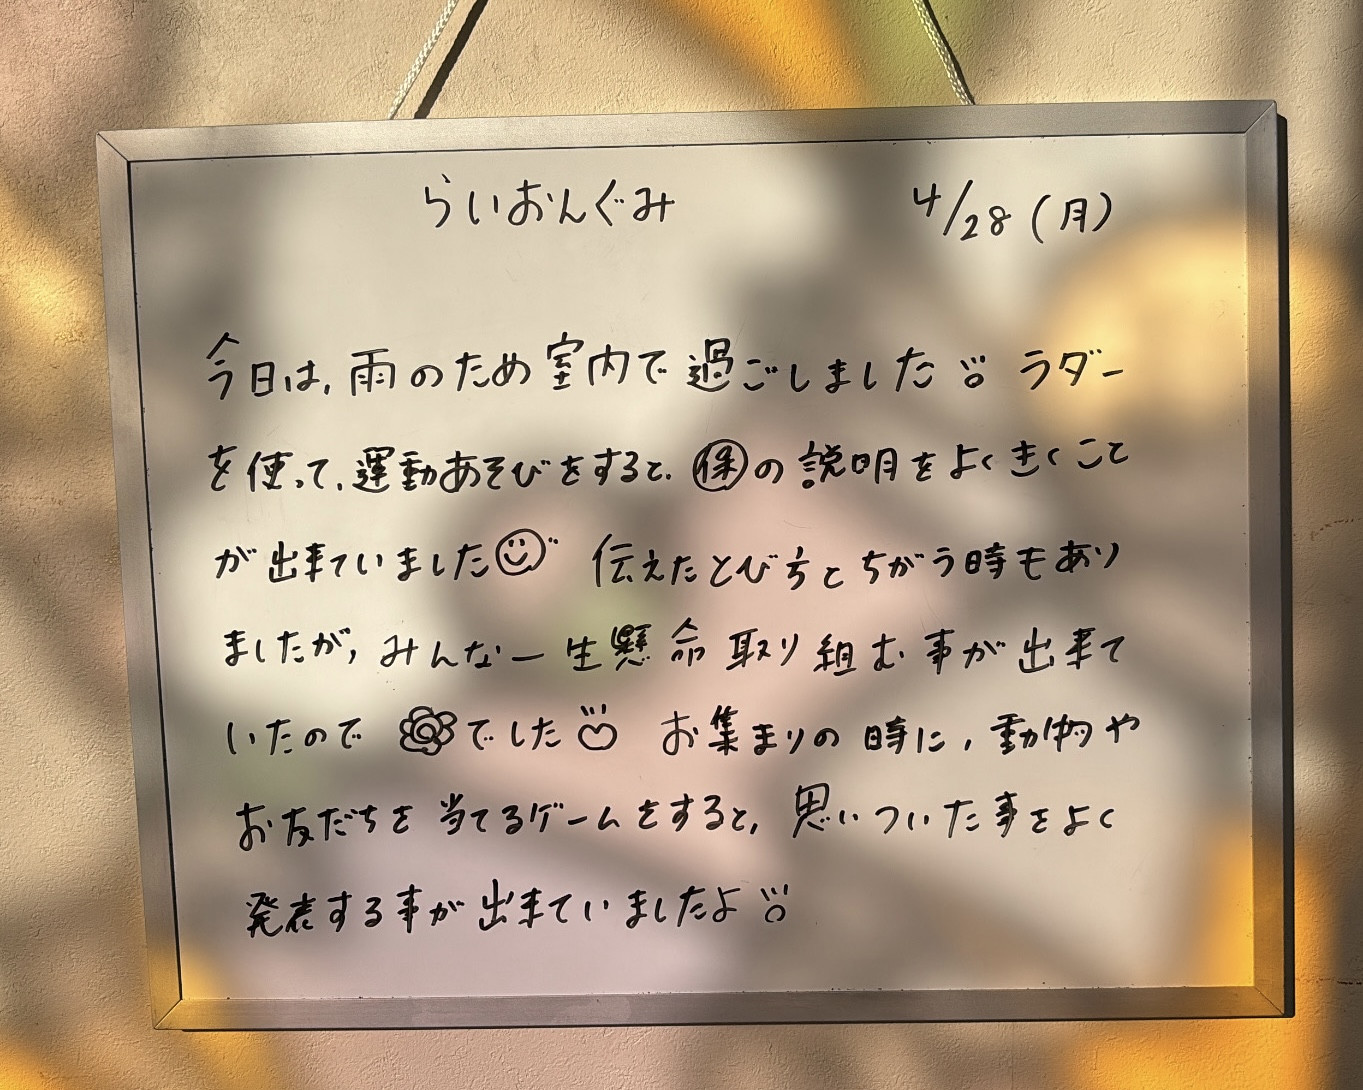 らいおんぐみ 4/28(月)
今日は、雨のため室内で過ごしました ラダー
を使って、運動あそびをすると、㋭の説明をよくきくこと
が出来ていました 伝えたとび方とちがう時もあり
ましたが、みんな一生懸命取り組む事が出来て
いたので でした お集まりの時に、動物や
お友だちを当てるゲームをすると、思いついた事をよく
発表する事が出来ていましたよ